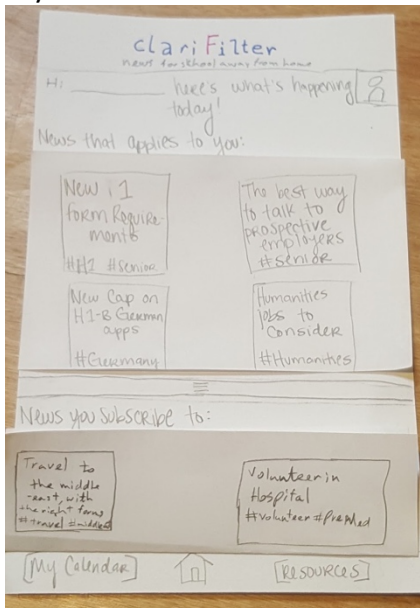 clariFilter
news for school away from home
Hi: here's what's happening
today!
News that applies to you:
New i1
form Require-
ments
#H1 #senior
The best way
to talk to
prospective
employers
#senior
New Cap on
H1-B German
apps
#Germany
Humanities
jobs to
Consider
#Humanities
News you subscribe to:
Travel to
the middle
-east, with
the right forms
#travel #middle
Volunteer in
Hospital
#volunteer #PreMed
[My Calendar]
[RESOURCES]